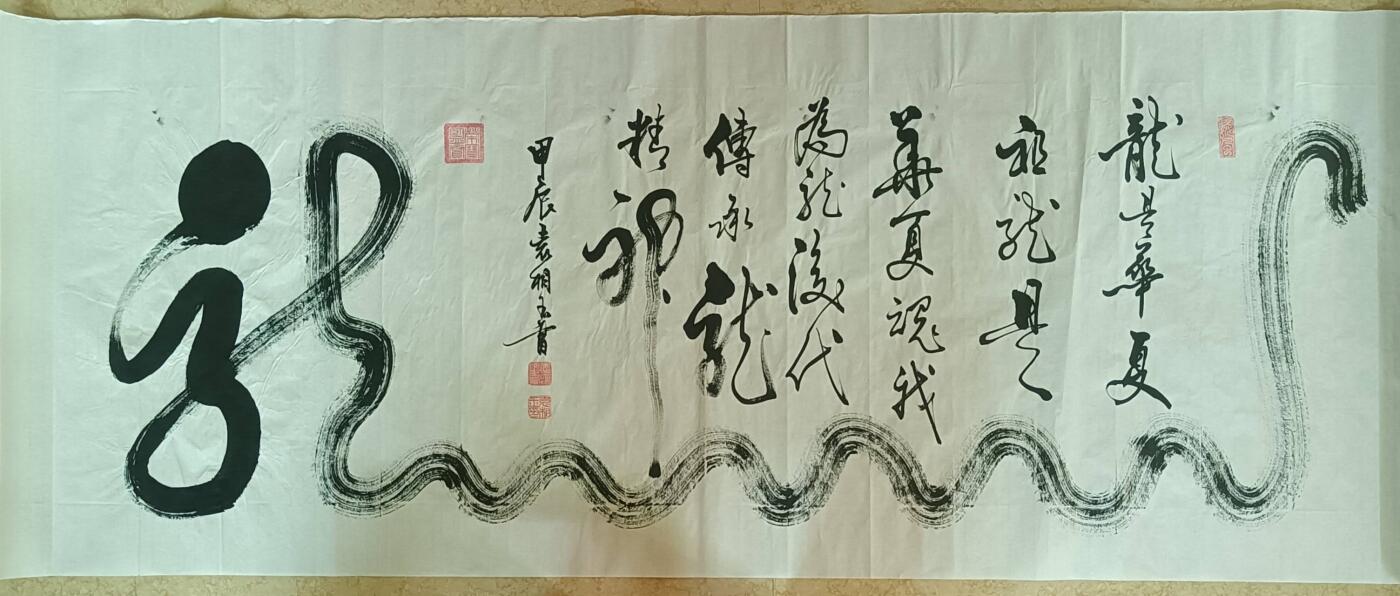 龍是華夏
祖龍是
華夏魂我
為龍後代
傳承龍
精神
甲辰袁相玉書
龍